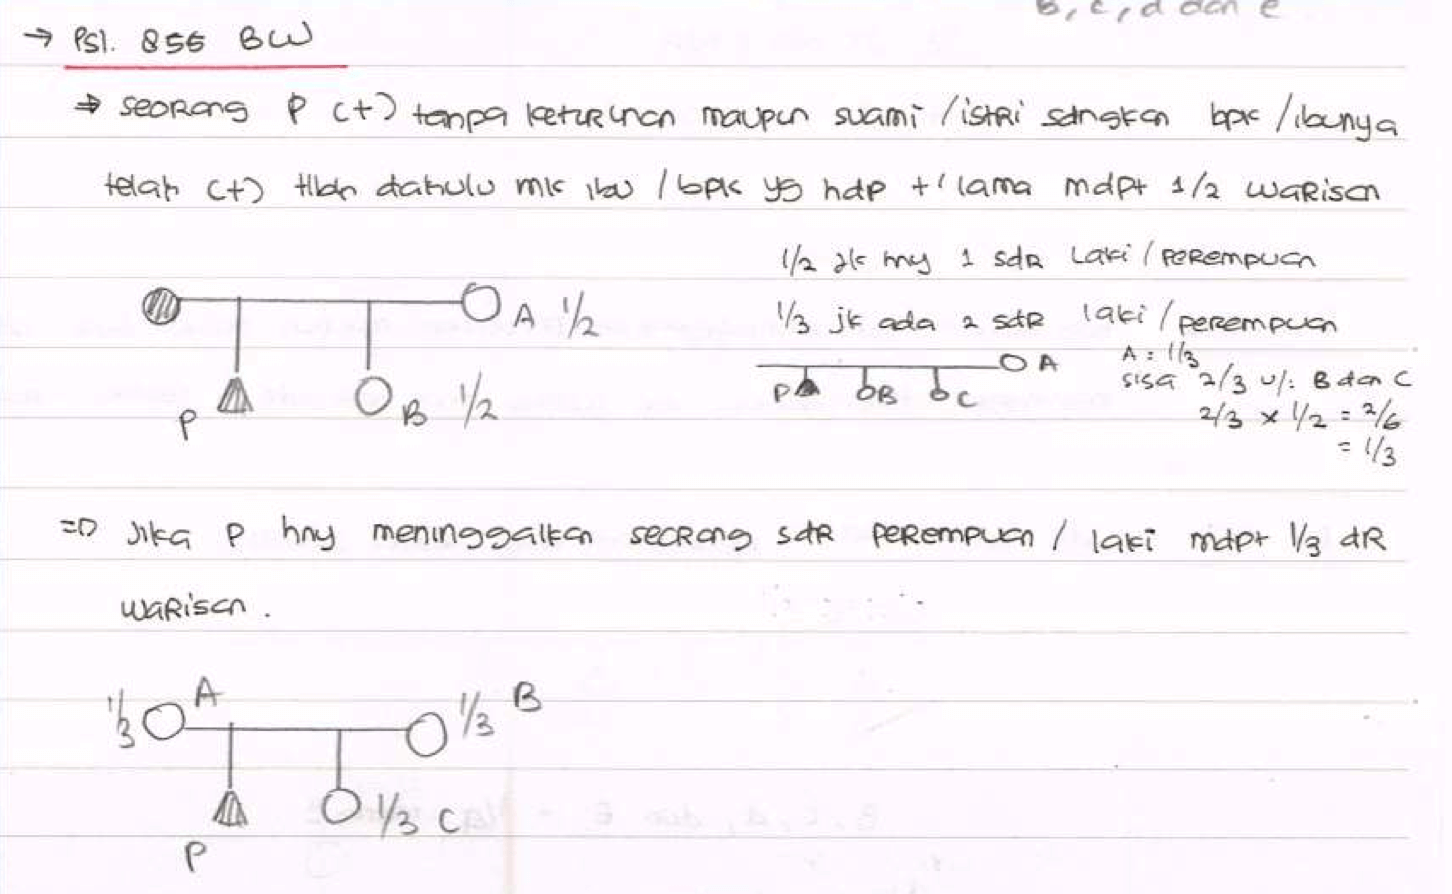 B, c, d dan e
→ Psl. 855 BW
⇒ seorang P (+) tanpa keturunan maupun suami / istri sdngkan bpk / ibunya
telah (+) tlbh dahulu mk ibu / bpk yg hdp t' lama mdpt 1/2 warisan
1/2 jk hny 1 sdR Laki / perempuan
A 1/2
1/3 jk ada 2 sdR laki / perempuan
P B 1/2
P B C A
A : 1/3
sisa 2/3 u/: B dan C
2/3 x 1/2 = 2/6
= 1/3
=D Jika P hny meninggalkan seorang sdR perempuan / laki mdpt 1/3 dR
warisan.
1/3 A 1/3 B
P 1/3 C